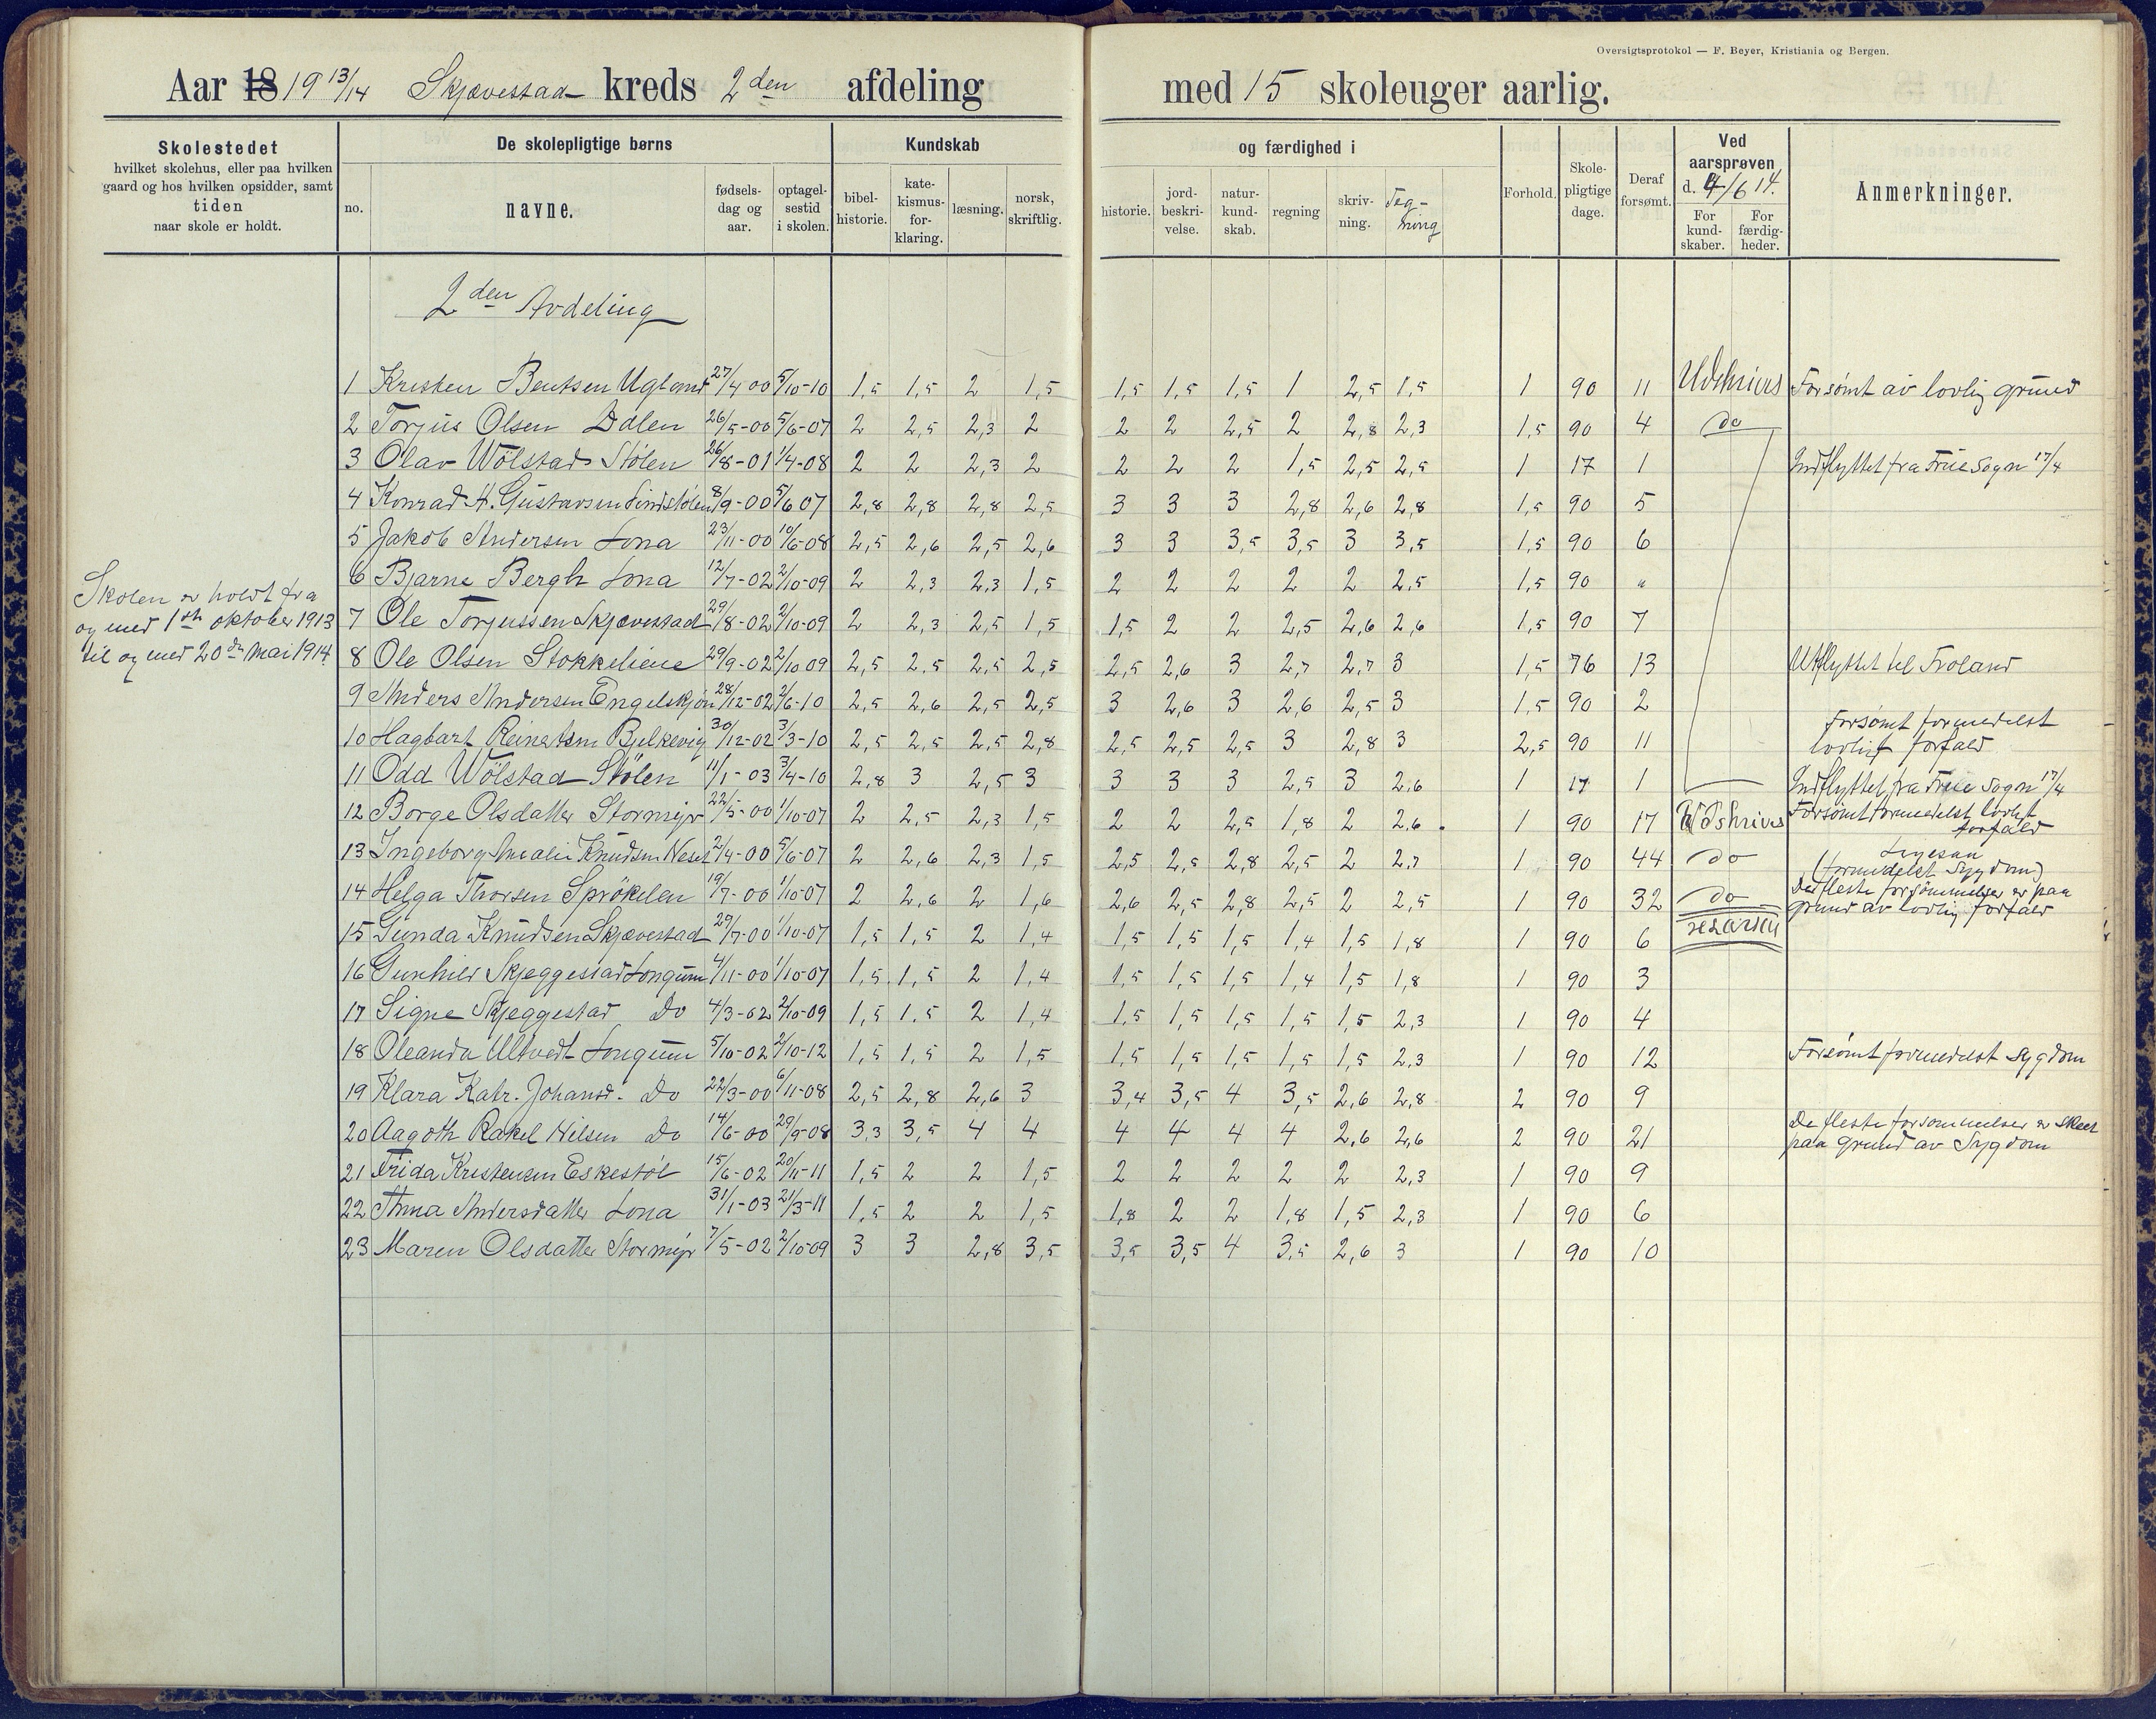 Oversigtsprotokol — F. Beyer, Kristiania og Bergen.
Aar 18 19 13/14 Skjævestad kreds 2den afdeling med 15 skoleuger aarlig.
Skolestedet
hvilket skolehus, eller paa hvilken
gaard og hos hvilken opsidder, samt
tiden
naar skole er holdt.
De skolepligtige børns
no. navne. fødsels-dag og aar. optagel-sestid i skolen.
Kundskab og færdighed i
bibel-historie. kate-kismus-for-klaring. læsning. norsk, skriftlig. historie. jord-beskri-velse. natur-kund-skab. regning skriv-ning. Teg-ning
Forhold. Skole-pligtige dage. Deraf forsømt.
Ved aarsprøven d. 4/6 14.
For kund-skaber. For færdig-heder.
Anmerkninger.
2den Avdeling
Skolen er holdt fra
og med 1ste oktober 1913
til og med 20de Mai 1914
1 Kristen Bentsen Ugland 27/4 00 5/10-10 1,5 1,5 2 1,5 1,5 1,5 1,5 1 2,5 1,5 1 90 11 Udskrives Forsømt av lovlig grund
2 Torjus Olsen Dalen 26/5-00 5/6-07 2 2,5 2,3 2 2 2 2,5 2 2,8 2,3 1,5 90 4 do
3 Olav Wølstad Stølen 26/8-01 1/4-08 2 2 2,3 2 2 2 2 1,5 2,5 2,5 1 17 1 Indflyttet fra True Sogn 17/4
4 Konrad H. Gustavsen Lindstølen 8/9-00 5/6 07 2,8 2,8 2,8 2,5 3 3 3 2,8 2,6 2,8 1,5 90 5
5 Jakob Andersen Lona 23/11-00 10/6-08 2,5 2,6 2,5 2,6 3 3 3,5 3,5 3 3,5 1,5 90 6
6 Bjarne Bergh Lona 12/7-02 2/10-09 2 2,3 2,3 1,5 2 2 2 2 2 2,5 1,5 90 "
7 Ole Torjussen Skjævestad 29/8-02 2/10-09 2 2,3 2,5 1,5 1,5 2 2 2,5 2,6 2,6 1,5 90 7
8 Ole Olsen Stokkeliene 29/9-02 2/10 09 2,5 2,5 2,5 2,5 2,5 2,6 3 2,7 2,7 3 1,5 76 13 Utflyttet til Froland
9 Anders Andersen Engelskjøn 28/12-02 2/6-10 2,5 2,6 2,5 2,5 3 2,6 3 2,6 2,5 3 1,5 90 2
10 Hagbart Reinertsen Bjelkevig 30/12-02 3/3-10 2,5 2,5 2,5 2,8 2,5 2,5 2,5 3 2,8 3 2,5 90 11 Forsømt formedelst lovligt forfald
11 Odd Wølstad Stølen 11/1-03 3/4-10 2,8 3 2,5 3 3 3 3 2,5 3 2,6 1 17 1 Indflyttet fra True Sogn 17/4
12 Borge Olsdatter Stormyr 22/5-00 1/10-07 2 2,5 2,3 1,5 2 2 2,5 1,8 2 2,6 1 90 17 Udskrives Forsømt formedelst lovligt forfald
13 Ingeborg Amalie Knudsen Neset 2/4-00 5/6-07 2 2,6 2,3 1,5 2,5 2,5 2,8 2,5 2 2,7 1 90 44 do (formedelst Sygdom)
14 Helga Thorsen Sprøkelen 19/7-00 1/10-07 2 2,6 2 1,6 2,6 2,5 2,8 2,5 2 2,5 1 90 32 do De fleste forsømmelser er paa grund av lovlig forfald
15 Gunda Knudsen Skjævestad 29/7-00 1/10-07 1,5 1,5 2 1,4 1,5 1,5 1,5 1,4 1,5 1,8 1 90 6
16 Gunhild Skjeggestad Longum 4/11-00 1/10-07 1,5 1,5 2 1,4 1,5 1,5 1,5 1,4 1,5 1,8 1 90 3
17 Signe Skjeggestad Do 4/3-02 2/10-09 1,5 1.5 2 1,4 1,5 1,5 1,5 1,5 1,5 2,3 1 90 4
18 Oleanda Ultvedt Longum 5/10-02 2/10-12 1,5 1,5 2 1,5 1,5 1,5 1,5 1,5 1,5 2,3 1 90 12 Forsømt formedelst Sygdom
19 Klara Katr. Johansd. Do 22/3-00 6/11-08 2,5 2,8 2,6 3 3,4 3,5 4 3,5 2,6 2,8 2 90 9
20 Aagoth Rakel Nilsen Do 14/6-00 29/9-08 3,3 3,5 4 4 4 4 4 4 2,6 2,6 2 90 21 De fleste forsømmelser er skeet paa grund av Sygdom
21 Frida Kristensen Eskestøl 15/6-02 20/11-11 1,5 2 2 1,5 2 2 2 2 2 2,3 1 90 9
22 Anna Andersdatter Lona 31/1-03 21/3-11 1,5 2 2 1,5 1,8 2 2 1,8 1,5 2,3 1 90 6
23 Maren Olsdatter Stormyr 7/5-02 2/10-09 3 3 2,8 3,5 3,5 3,5 4 3,5 2,6 3 1 90 10